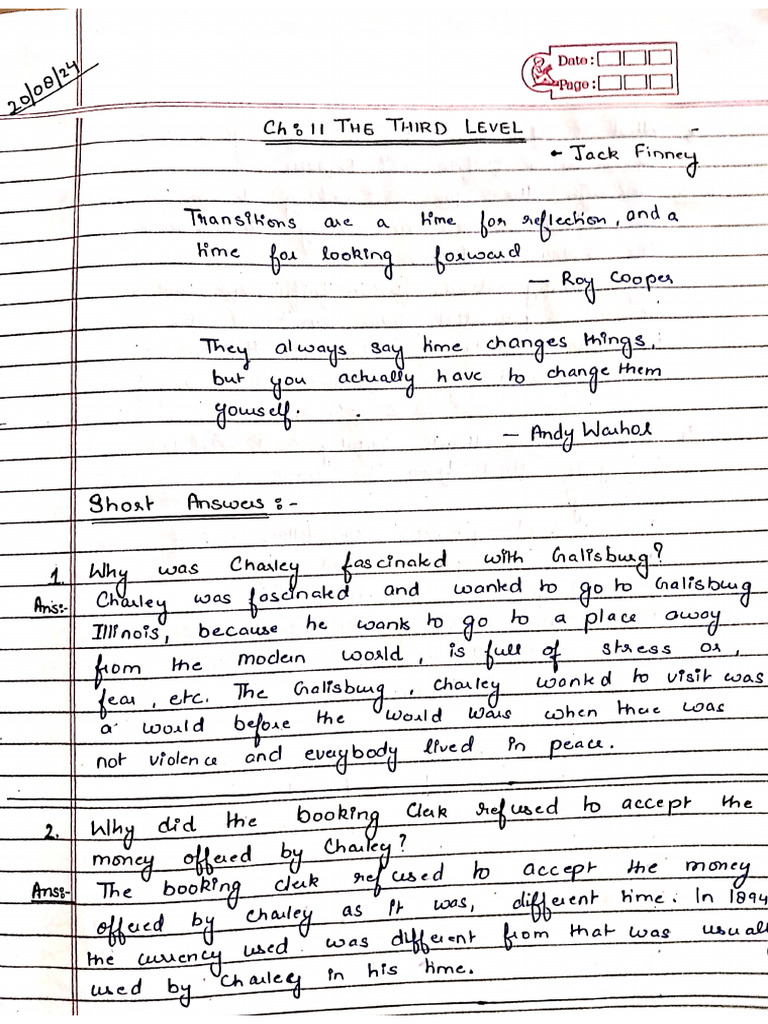 20/08/24
Date:
Page:
Ch: 11 THE THIRD LEVEL
- Jack Finney
Transitions are a time for reflection, and a
time for looking forward
- Roy Cooper
They always say time changes things,
but you actually have to change them
yourself.
- Andy Warhol
Short Answers :-
1. Why was Charley fascinated with Galisburg?
Ans:- Charley was fascinated and wanted to go to Galisburg
Illinois, because he wants to go to a place away
from the modern world, is full of stress or,
fear, etc. The Galisburg, Charley wanted to visit was
a world before the world wars when there was
not violence and everybody lived in peace.
2. Why did the booking clerk refused to accept the
money offered by Charley?
Ans:- The booking clerk refused to accept the money
offered by Charley as it was, different time. In 1894
the currency used was different from that was usuall
used by Charley in his time.